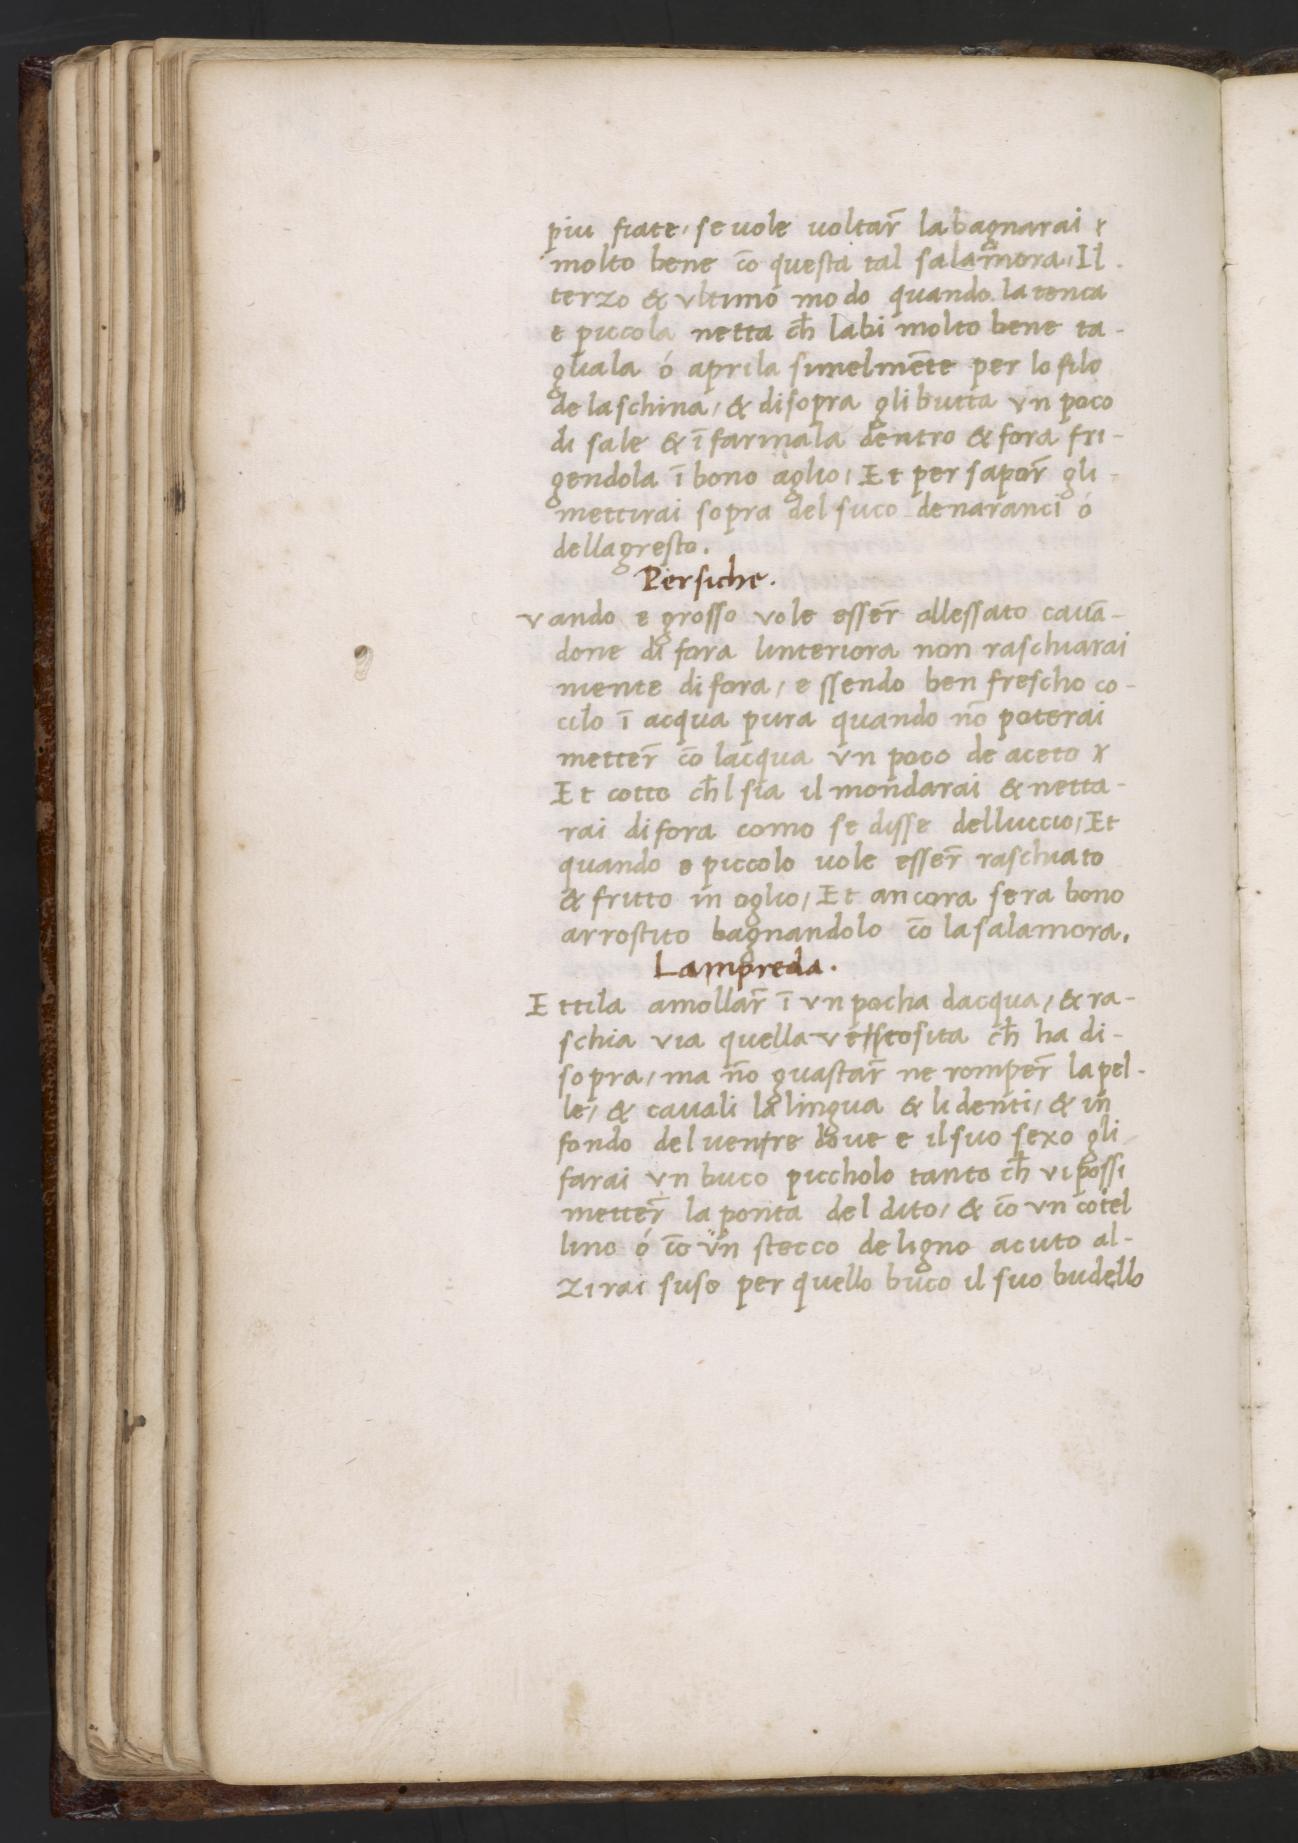 piu fiate, se uole voltar̃ la bagnarai &
molto bene cõ questa tal salamora, Il
terzo & vltimo modo quando la tenca
e piccola netta ch̃ labi molto bene ta-
gliala ó aprila simelmẽte per lo filo
de la schina, & disopra gli butta vn poco
di sale & ĩfarinala dentro & fora fri-
gendola ĩ bono oglio, Et per sapor̃ gli
mettirai sopra del suco de naranci ó
dellagresto.
Persiche.
vando e grosso vole esser̃ allessato cauã-
done di fora linteriora non raschiarai
niente di fora, essendo ben frescho co-
cilo ĩ acqua pura quando nõ poterai
metter̃ cõ lacqua vn poco de aceto &
Et cotto ch̃l sia il mondarai & netta-
rai di fora como se disse delluccio, Et
quando e piccolo uole esser̃ raschiato
& fritto in oglio, Et ancora sera bono
arrostito bagnandolo cõ la salamora.
Lampreda.
Ettila amollar̃ ĩ vn pocha dacqua, & ra-
schia via quella viscosita ch̃ ha di-
sopra, ma nõ guastar̃ ne romper̃ la pel-
le, & cauali la lingua & li denti, & in
fondo del ventre doue e il suo sexo gli
farai vn buco piccholo tanto ch̃ vi possi
metter̃ la ponta del dito, & cõ vn cotel
lino ó cõ vn stecco de ligno acuto al-
zirai suso per quello buco il suo budello